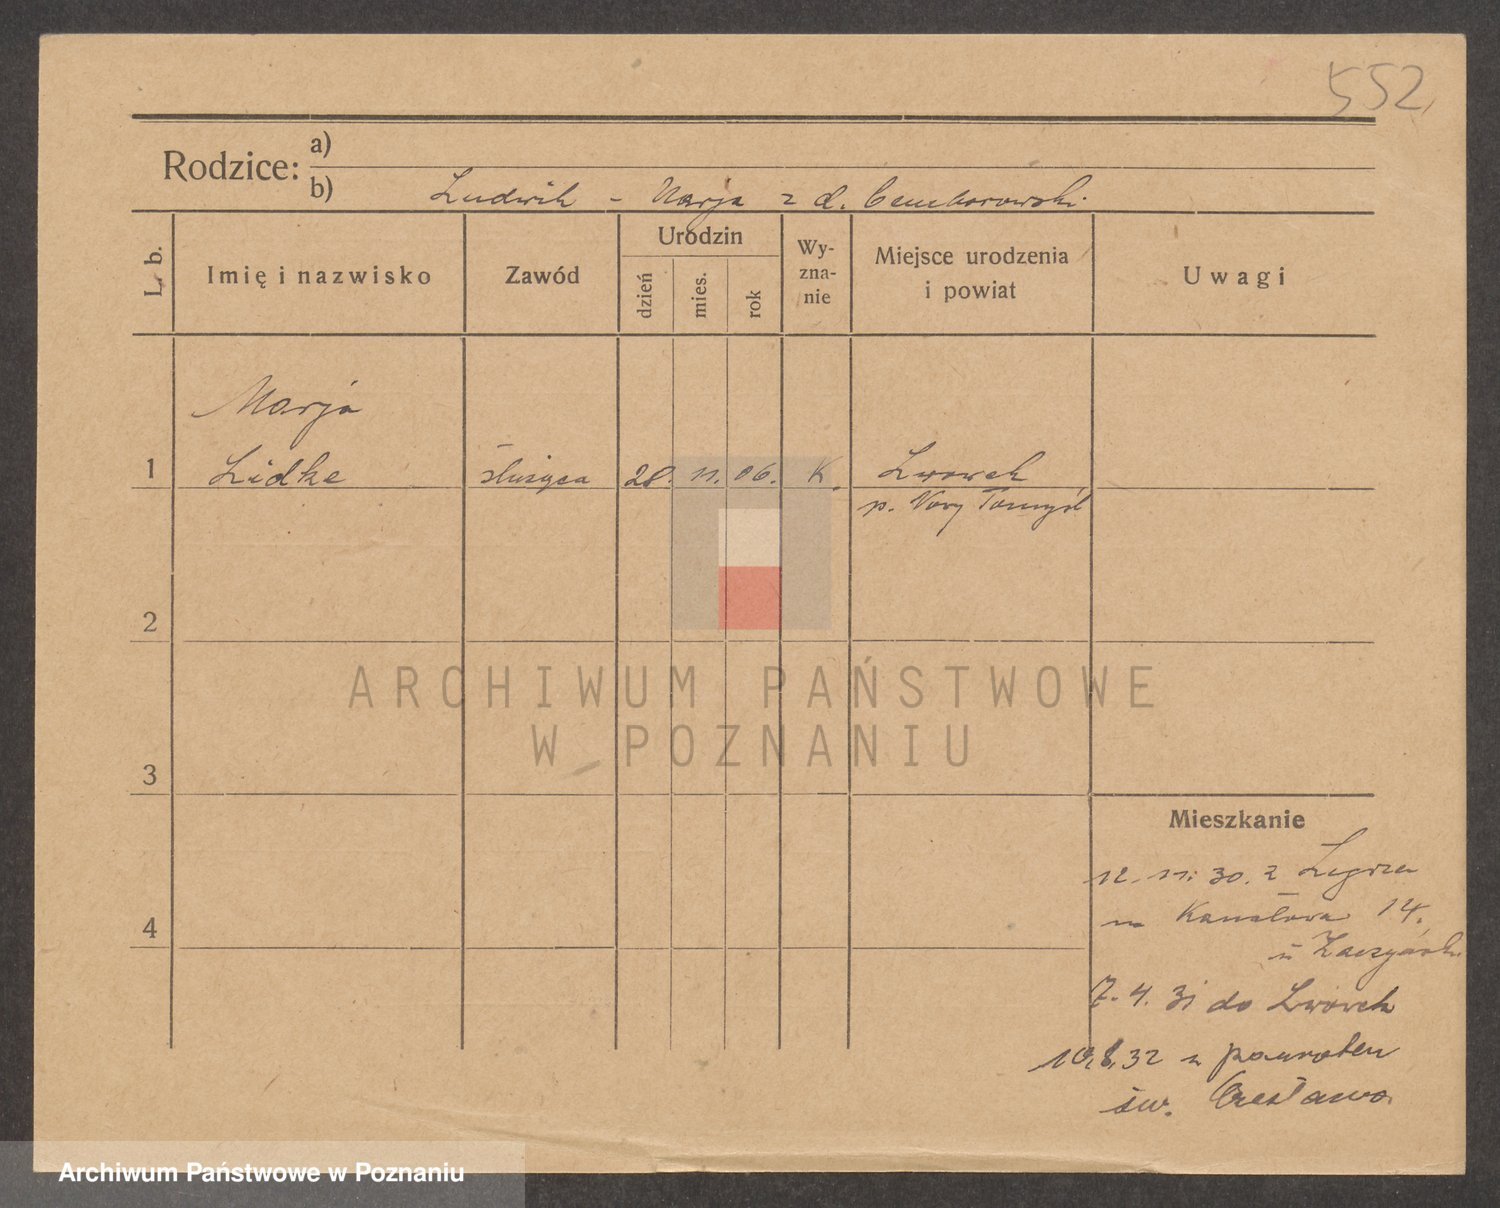 552
Rodzice:
a)
b) Ludwik - Marja z d.
L. b.
Imię i nazwisko
Zawód
Urodzin
dzień
mies.
rok
Wy-
zna-
nie
Miejsce urodzenia
i powiat
Uwagi
Marja
1 Lidke służąca 28. 11. 06. K. Lwówek
p. Nowy Tomyśl
2
3
4
Mieszkanie
12. 11. 30. z
na Kanałowa 14.
u
7. 4. 31 do Lwówek
10.8.32 z powrotem
św. Czesława
ARCHIWUM PAŃSTWOWE
W POZNANIU
Archiwum Państwowe w Poznaniu